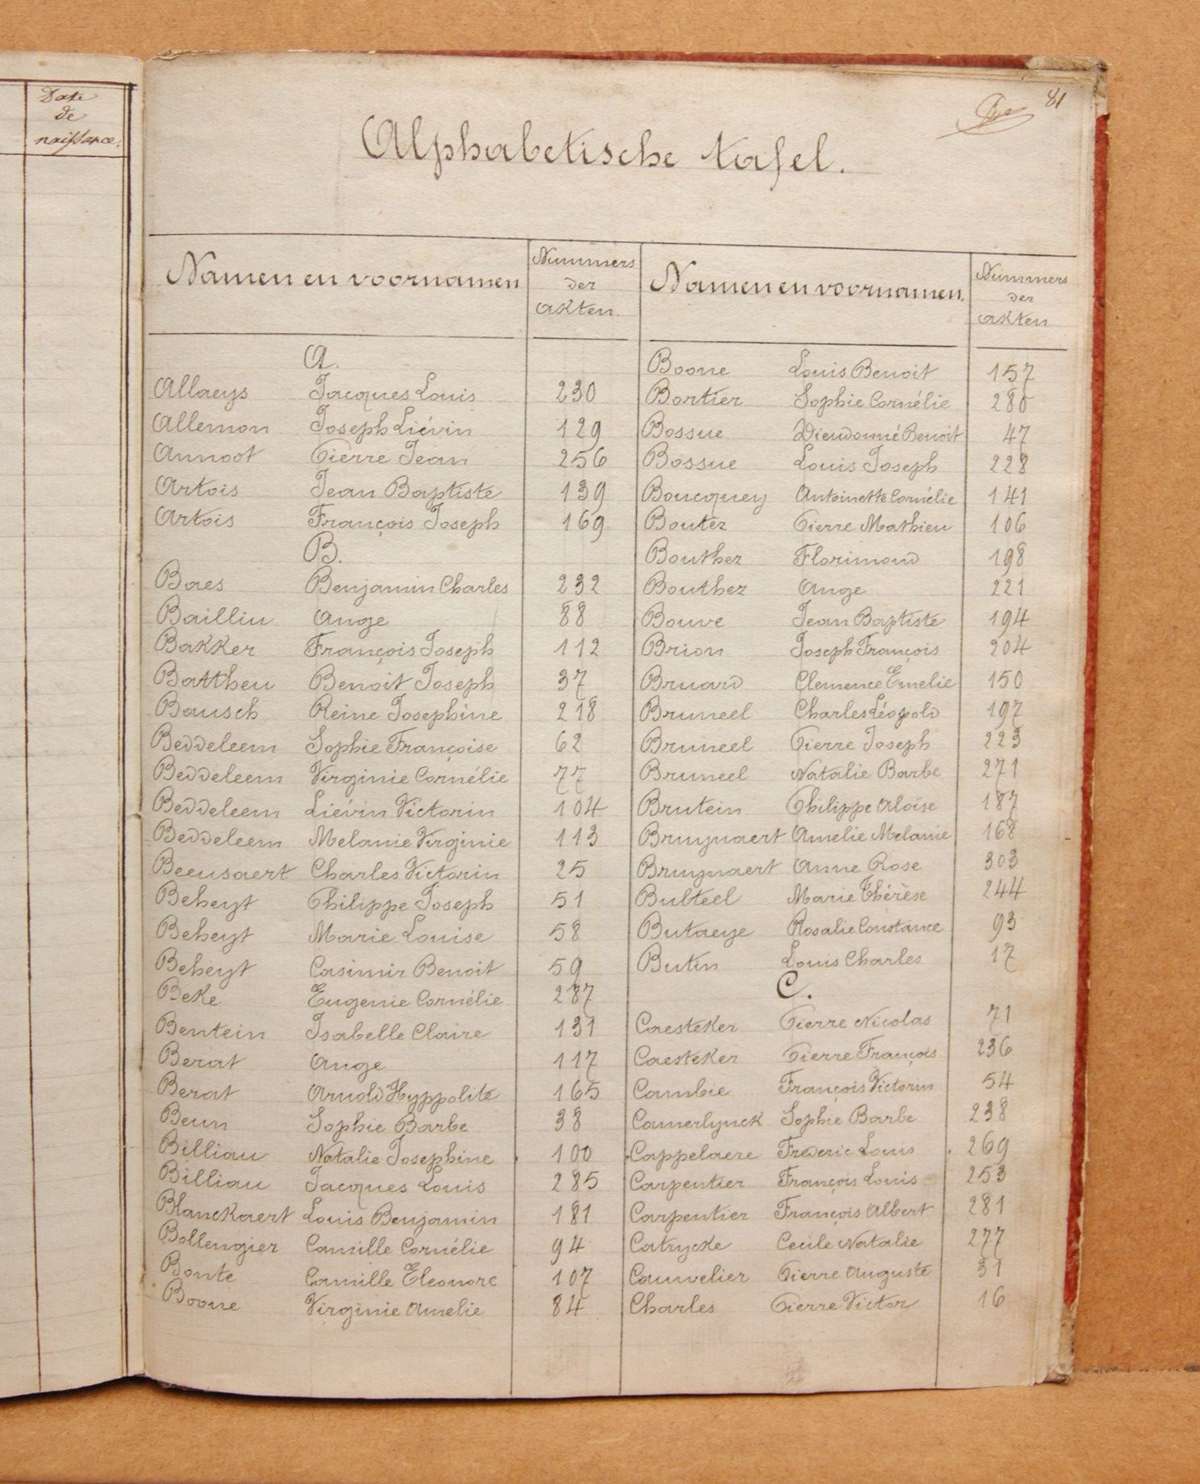 Date
de
naissance.
81
Alphabetische tafel.
Namen en voornamen
Nummers
der
akten.
Namen en voornamen.
Nummers
der
akten
A.
Allaeys Jacques Louis 230
Allemon Joseph Liévin 129
Annoot Pierre Jean 256
Artois Jean Baptiste 139
Artois François Joseph 169
B.
Baes Benjamin Charles 232
Bailliu Ange 88
Bakker François Joseph 112
Battheu Benoit Joseph 37
Bausch Reine Josephine 218
Beddeleem Sophie Françoise 62
Beddeleem Virginie Cornélie 77
Beddeleem Liévin Victorin 104
Beddeleem Melanie Virginie 113
Beeusaert Charles Victorin 25
Beheyt Philippe Joseph 51
Beheyt Marie Louise 58
Beheyt Casimir Benoit 59
Beke Eugenie Cornélie 287
Bentein Isabelle Claire 131
Berat Ange 117
Berat Arnold Hyppolite 165
Beun Sophie Barbe 38
Billiau Natalie Josephine 100
Billiau Jacques Louis 285
Blanckaert Louis Benjamin 181
Bollengier Camille Cornélie 94
Bonte Camille Eleonore 107
Boone Virginie Amelie 84
Boone Louis Benoit 157
Bortier Sophie Cornélie 280
Bossue Dieudonné Benoit 47
Bossue Louis Joseph 228
Boucquey Antoinette Cornélie 141
Boutez Pierre Mathieu 106
Bouthez Florimond 198
Bouthez Ange 221
Bouve Jean Baptiste 194
Brion Joseph François 204
Bruard Clemence Emelie 150
Bruneel Charles Léopold 197
Bruneel Pierre Joseph 223
Bruneel Natalie Barbe 271
Brutein Philippe Aloïse 187
Bruynaert Amelie Melanie 168
Bruynaert Anne Rose 303
Bulteel Marie Thérèse 244
Butaeye Rosalie Constance 93
Butin Louis Charles 17
C.
Caesteker Pierre Nicolas 71
Caesteker Pierre François 236
Cambie François Victorin 54
Camerlynck Sophie Barbe 238
Cappelaere Frederic Louis 269
Carpentier François Louis 253
Carpentier François Albert 281
Catrycke Cecile Natalie 277
Cauwelier Pierre Auguste 31
Charles Pierre Victor 16